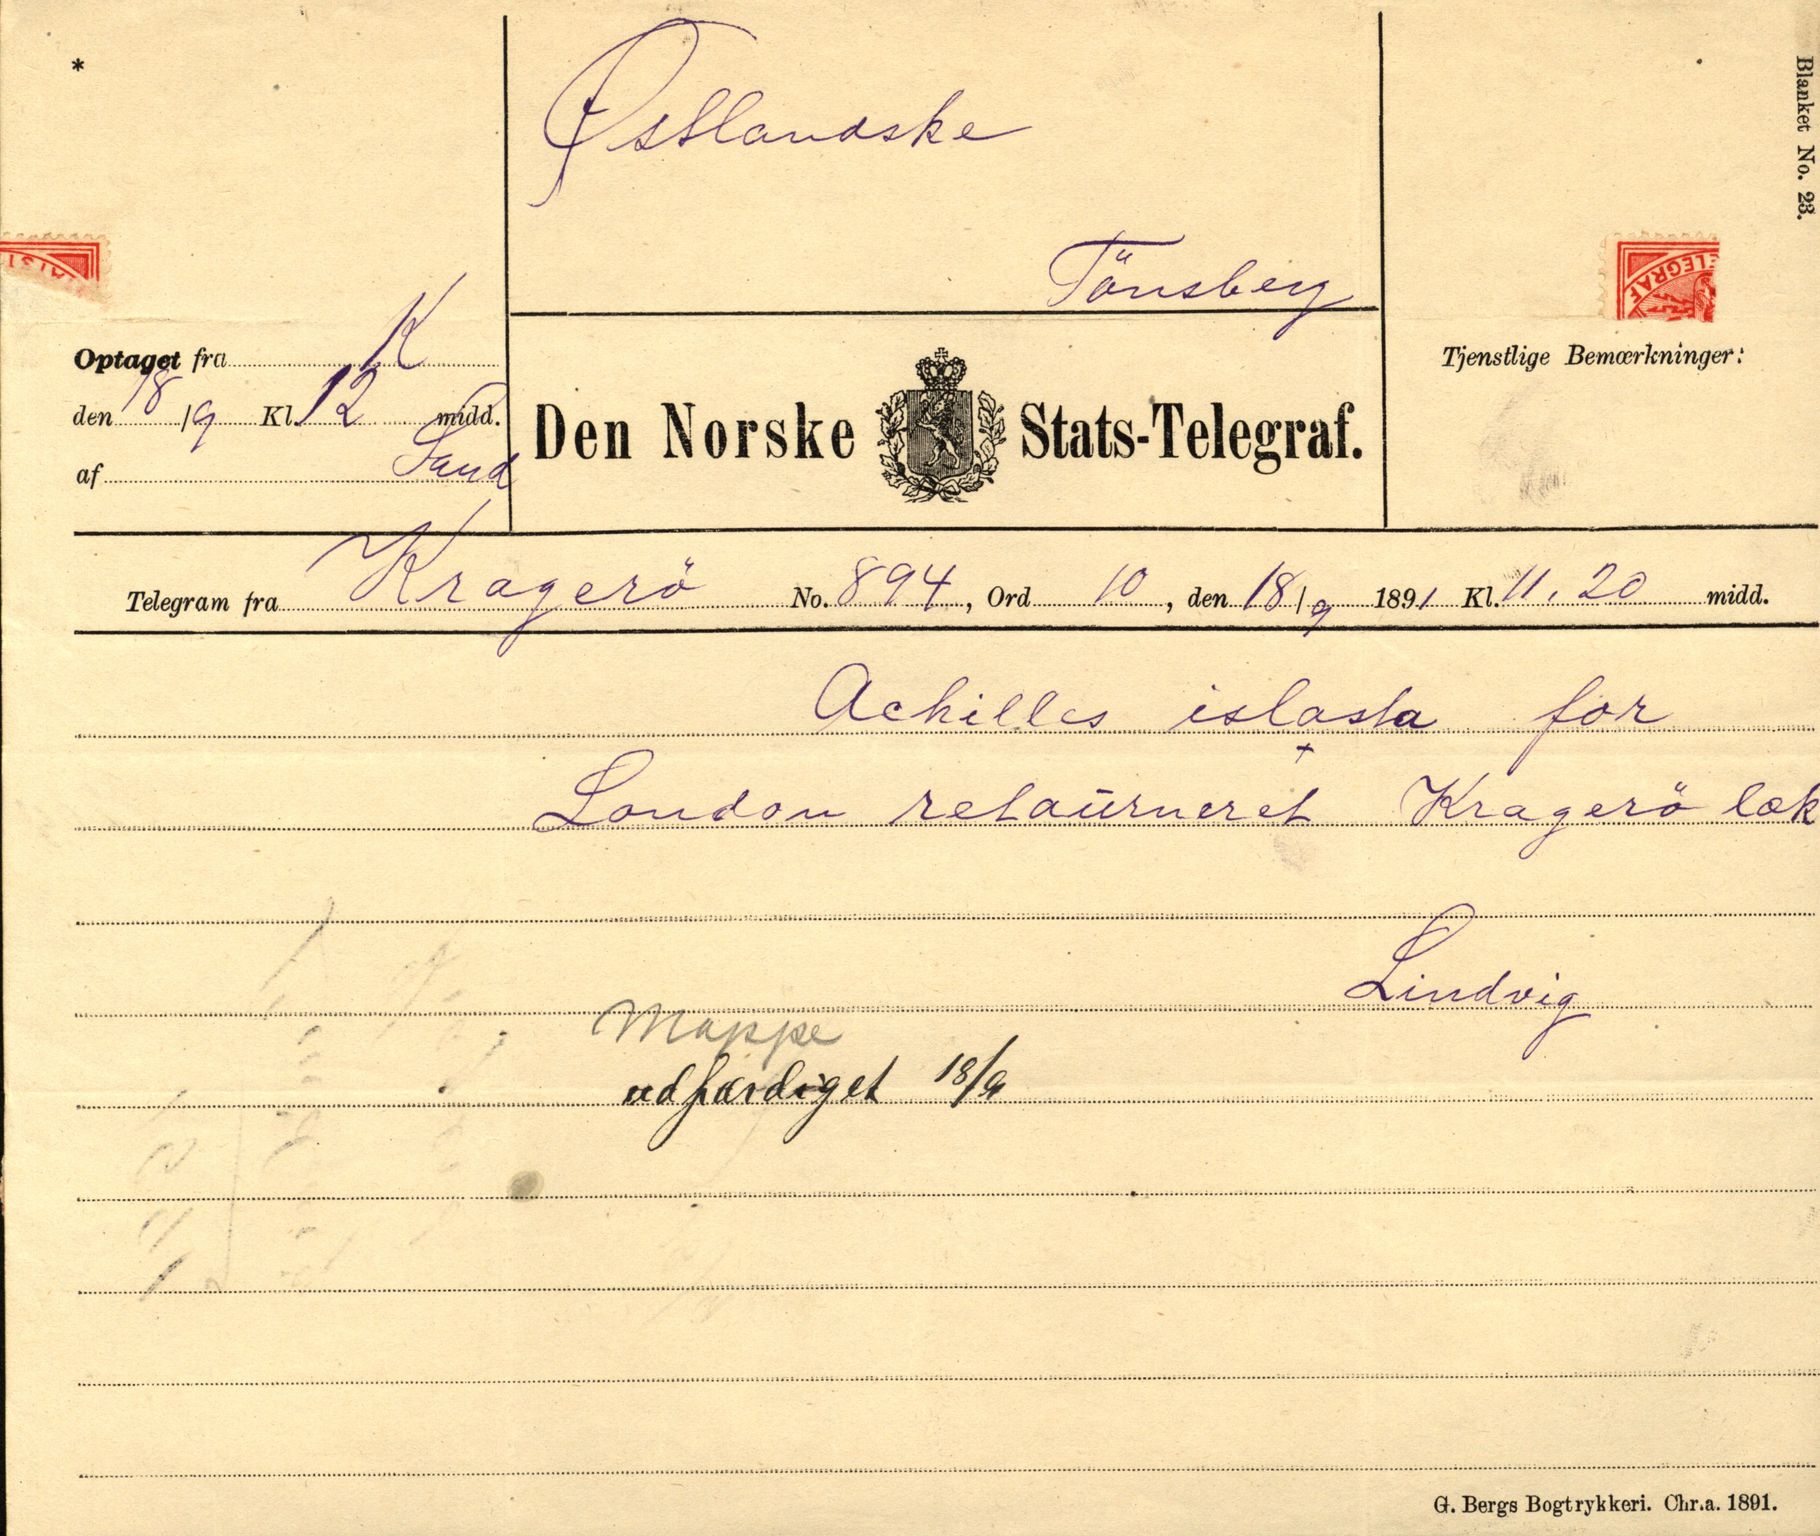 *
Blanket No. 23.
Østlandske
Tönsberg
TELEGRAF
Optaget fra K
den 18/9 Kl. 12 midd.
af Sand
Den Norske Stats-Telegraf.
Tjenstlige Bemærkninger:
Telegram fra Kragerö No. 894, Ord 10, den 18/9 1891 Kl. 11.20 midd.
Achilles islasta for
London retourneret Kragerö læk
Lindvig
Mappe
udfærdiget 18/9
G. Bergs Bogtrykkeri. Chr.a. 1891.